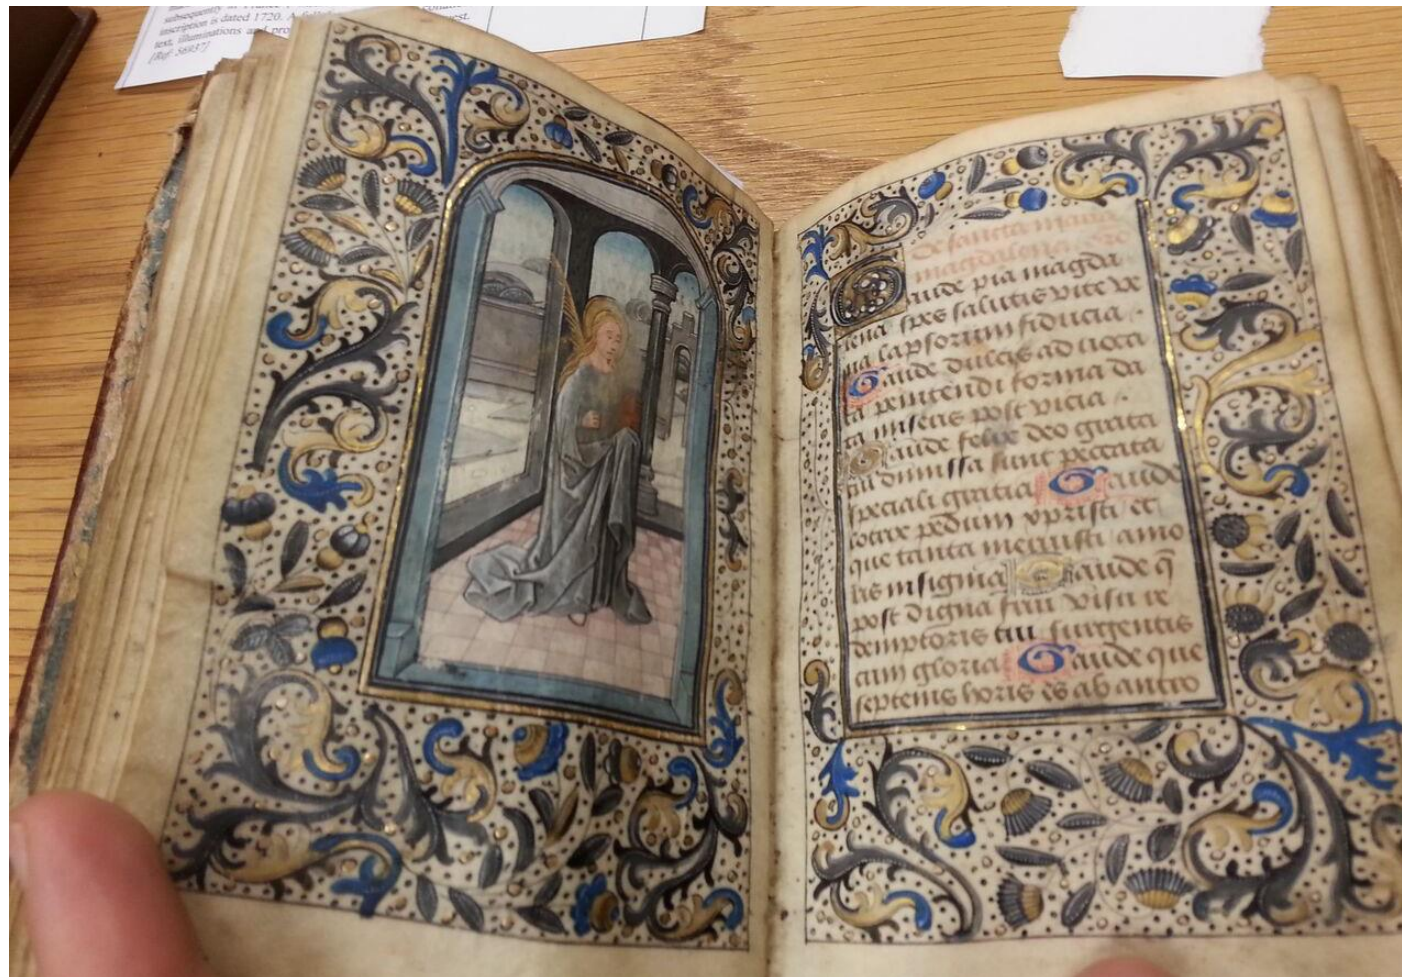 subsequently in France
inscription is dated 1720. A
text, illuminations and
[Ref: 56937]
De sancta maria
magdalena.
Gaude pia magda
lena spes salutis vite ve
na lapsorum fiducia.
Gaude dulcis aduoca
ta penitendi forma da
ta miseris post vicia.
Gaude felix deo grata
cui dimissa sunt peccata
speciali gratia Gaude
lotrix pedum xpristi et
que tanta meruisti amo
ris insignia Gaude q̃
post digna frui visu re
demptoris tui surgentis
cum gloria Gaude que
septenis horis es ab antro